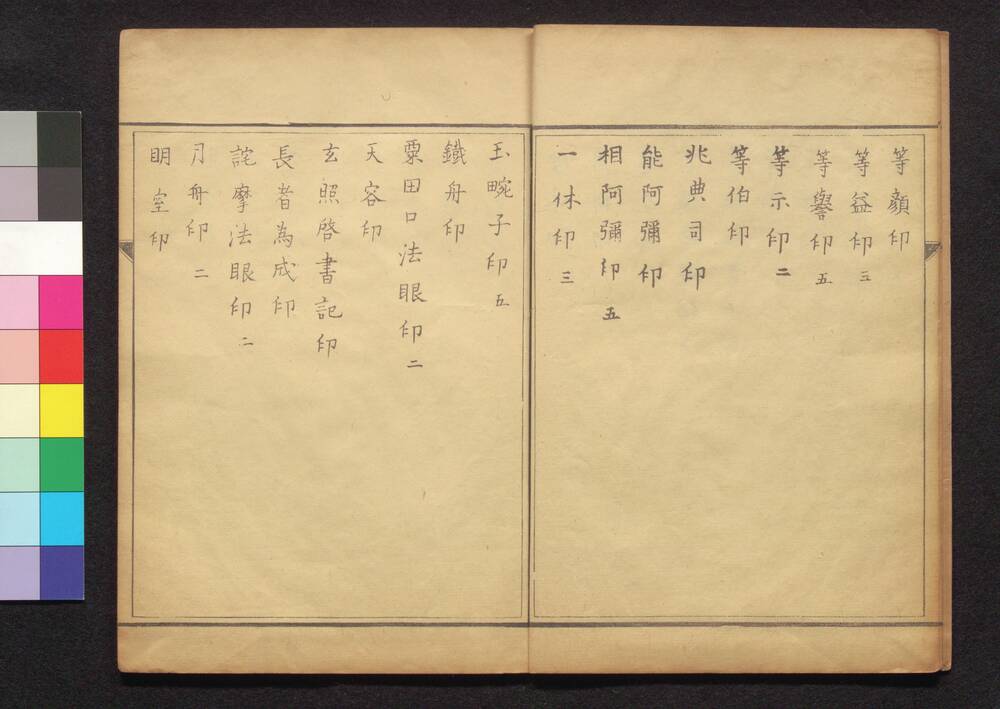 等顔印
等益印三
等譽印五
等示印二
等伯印
兆典司印
能阿彌印
相阿彌印五
一休印三
玉畹子印五
鐵舟印
粟田口法眼印二
天容印
玄照啓書記印
長者為成印
詫摩法眼印二
月舟印二
明室印